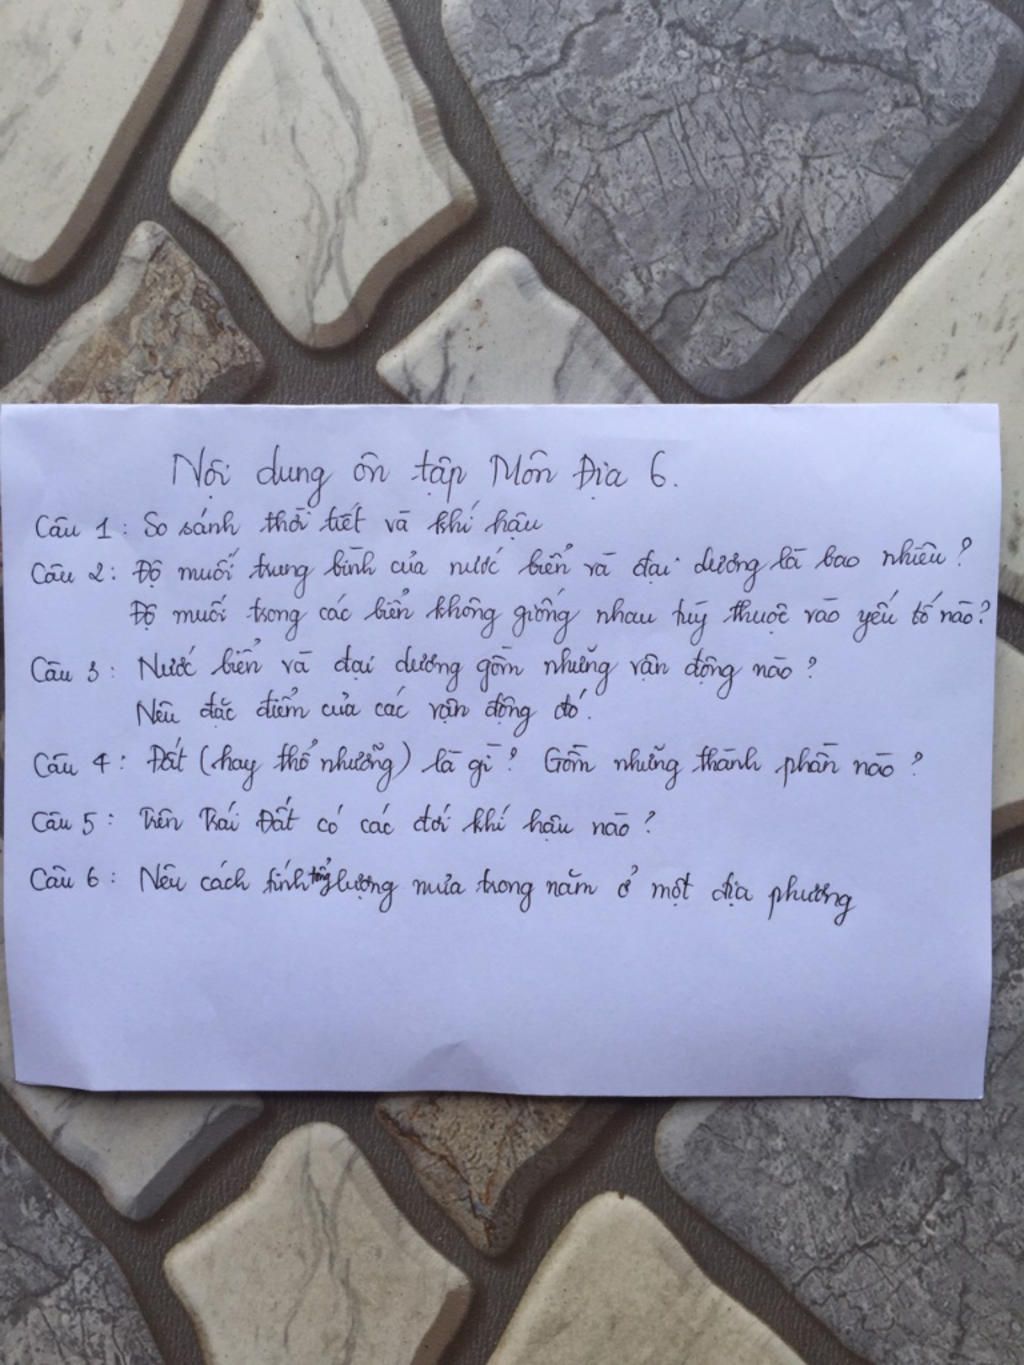 Nội dung ôn tập Môn Địa 6.
Câu 1: So sánh thời tiết và khí hậu
Câu 2: Độ muối trung bình của nước biển và đại dương là bao nhiêu?
Độ muối trong các biển không giống nhau tuỳ thuộc vào yếu tố nào?
Câu 3: Nước biển và đại dương gồm những vận động nào?
Nêu đặc điểm của các vận động đó.
Câu 4: Đất (hay thổ nhưỡng) là gì? Gồm những thành phần nào?
Câu 5: Trên Trái Đất có các đới khí hậu nào?
Câu 6: Nêu cách tính tổng lượng mưa trong năm ở một địa phương